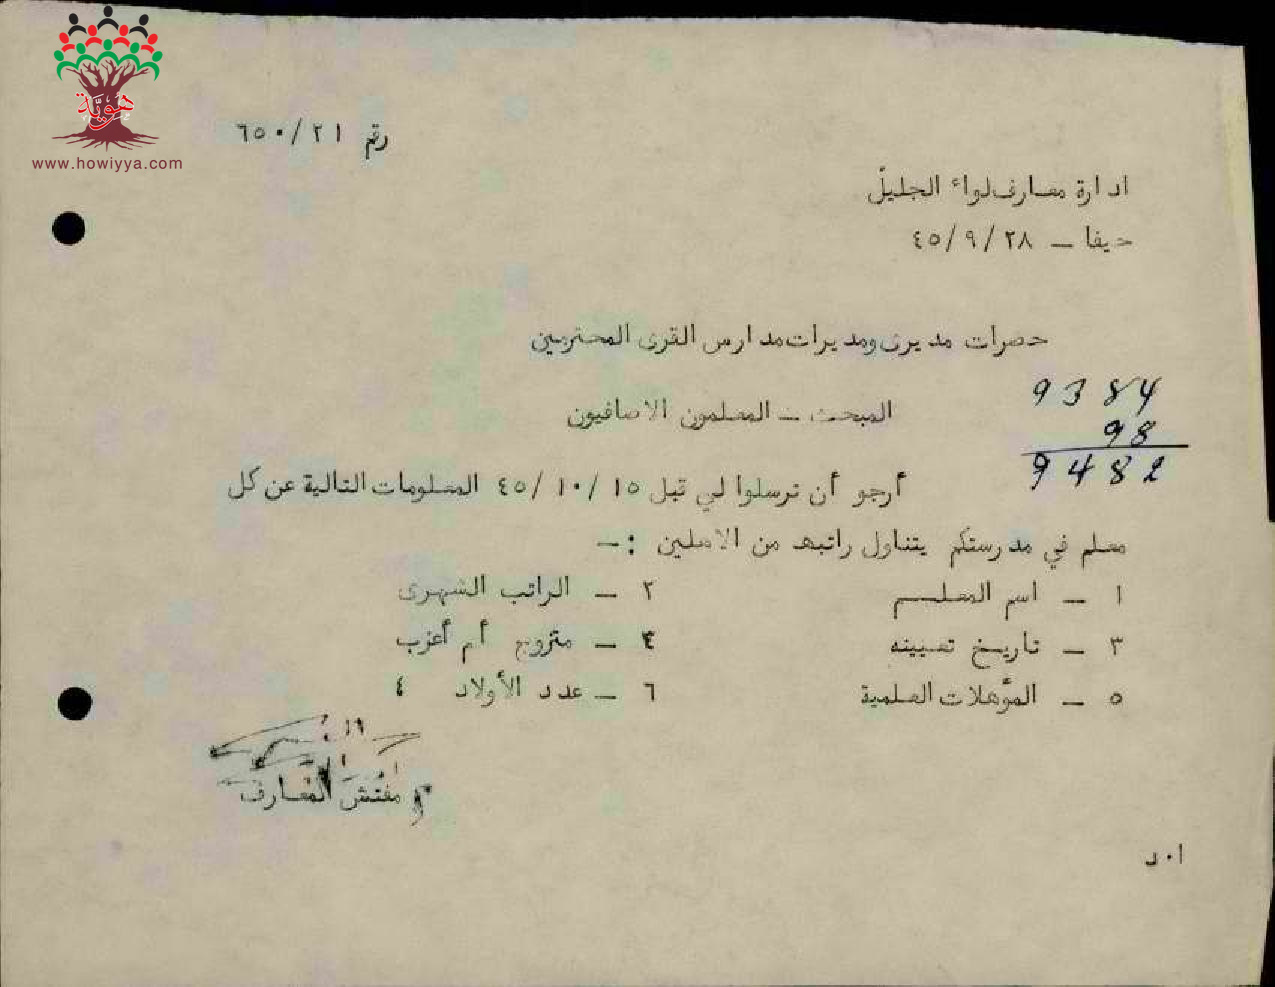 هويّة
www.howiyya.com
رقم ٦٥٠/٢١
ادارة معارف لواء الجليل
حيفا – ٤٥/٩/٢٨
حضرات مديرى ومديرات مدارس القرى المحترمين
9384
المبحث – المعلمون الاضافيون
98
9482
أرجو أن ترسلوا لي قبل ٤٥/١٠/١٥ المعلومات التالية عن كل
معلم في مدرستكم يتناول راتبه من الاهلين :–
١ – اسم المعلم ٢ – الراتب الشهرى
٣ – تاريخ تعيينه ٤ – متزوج أم أعزب
٥ – المؤهلات العلمية ٦ – عدد الأولاد ٤
مفتش المعارف
ا٠د